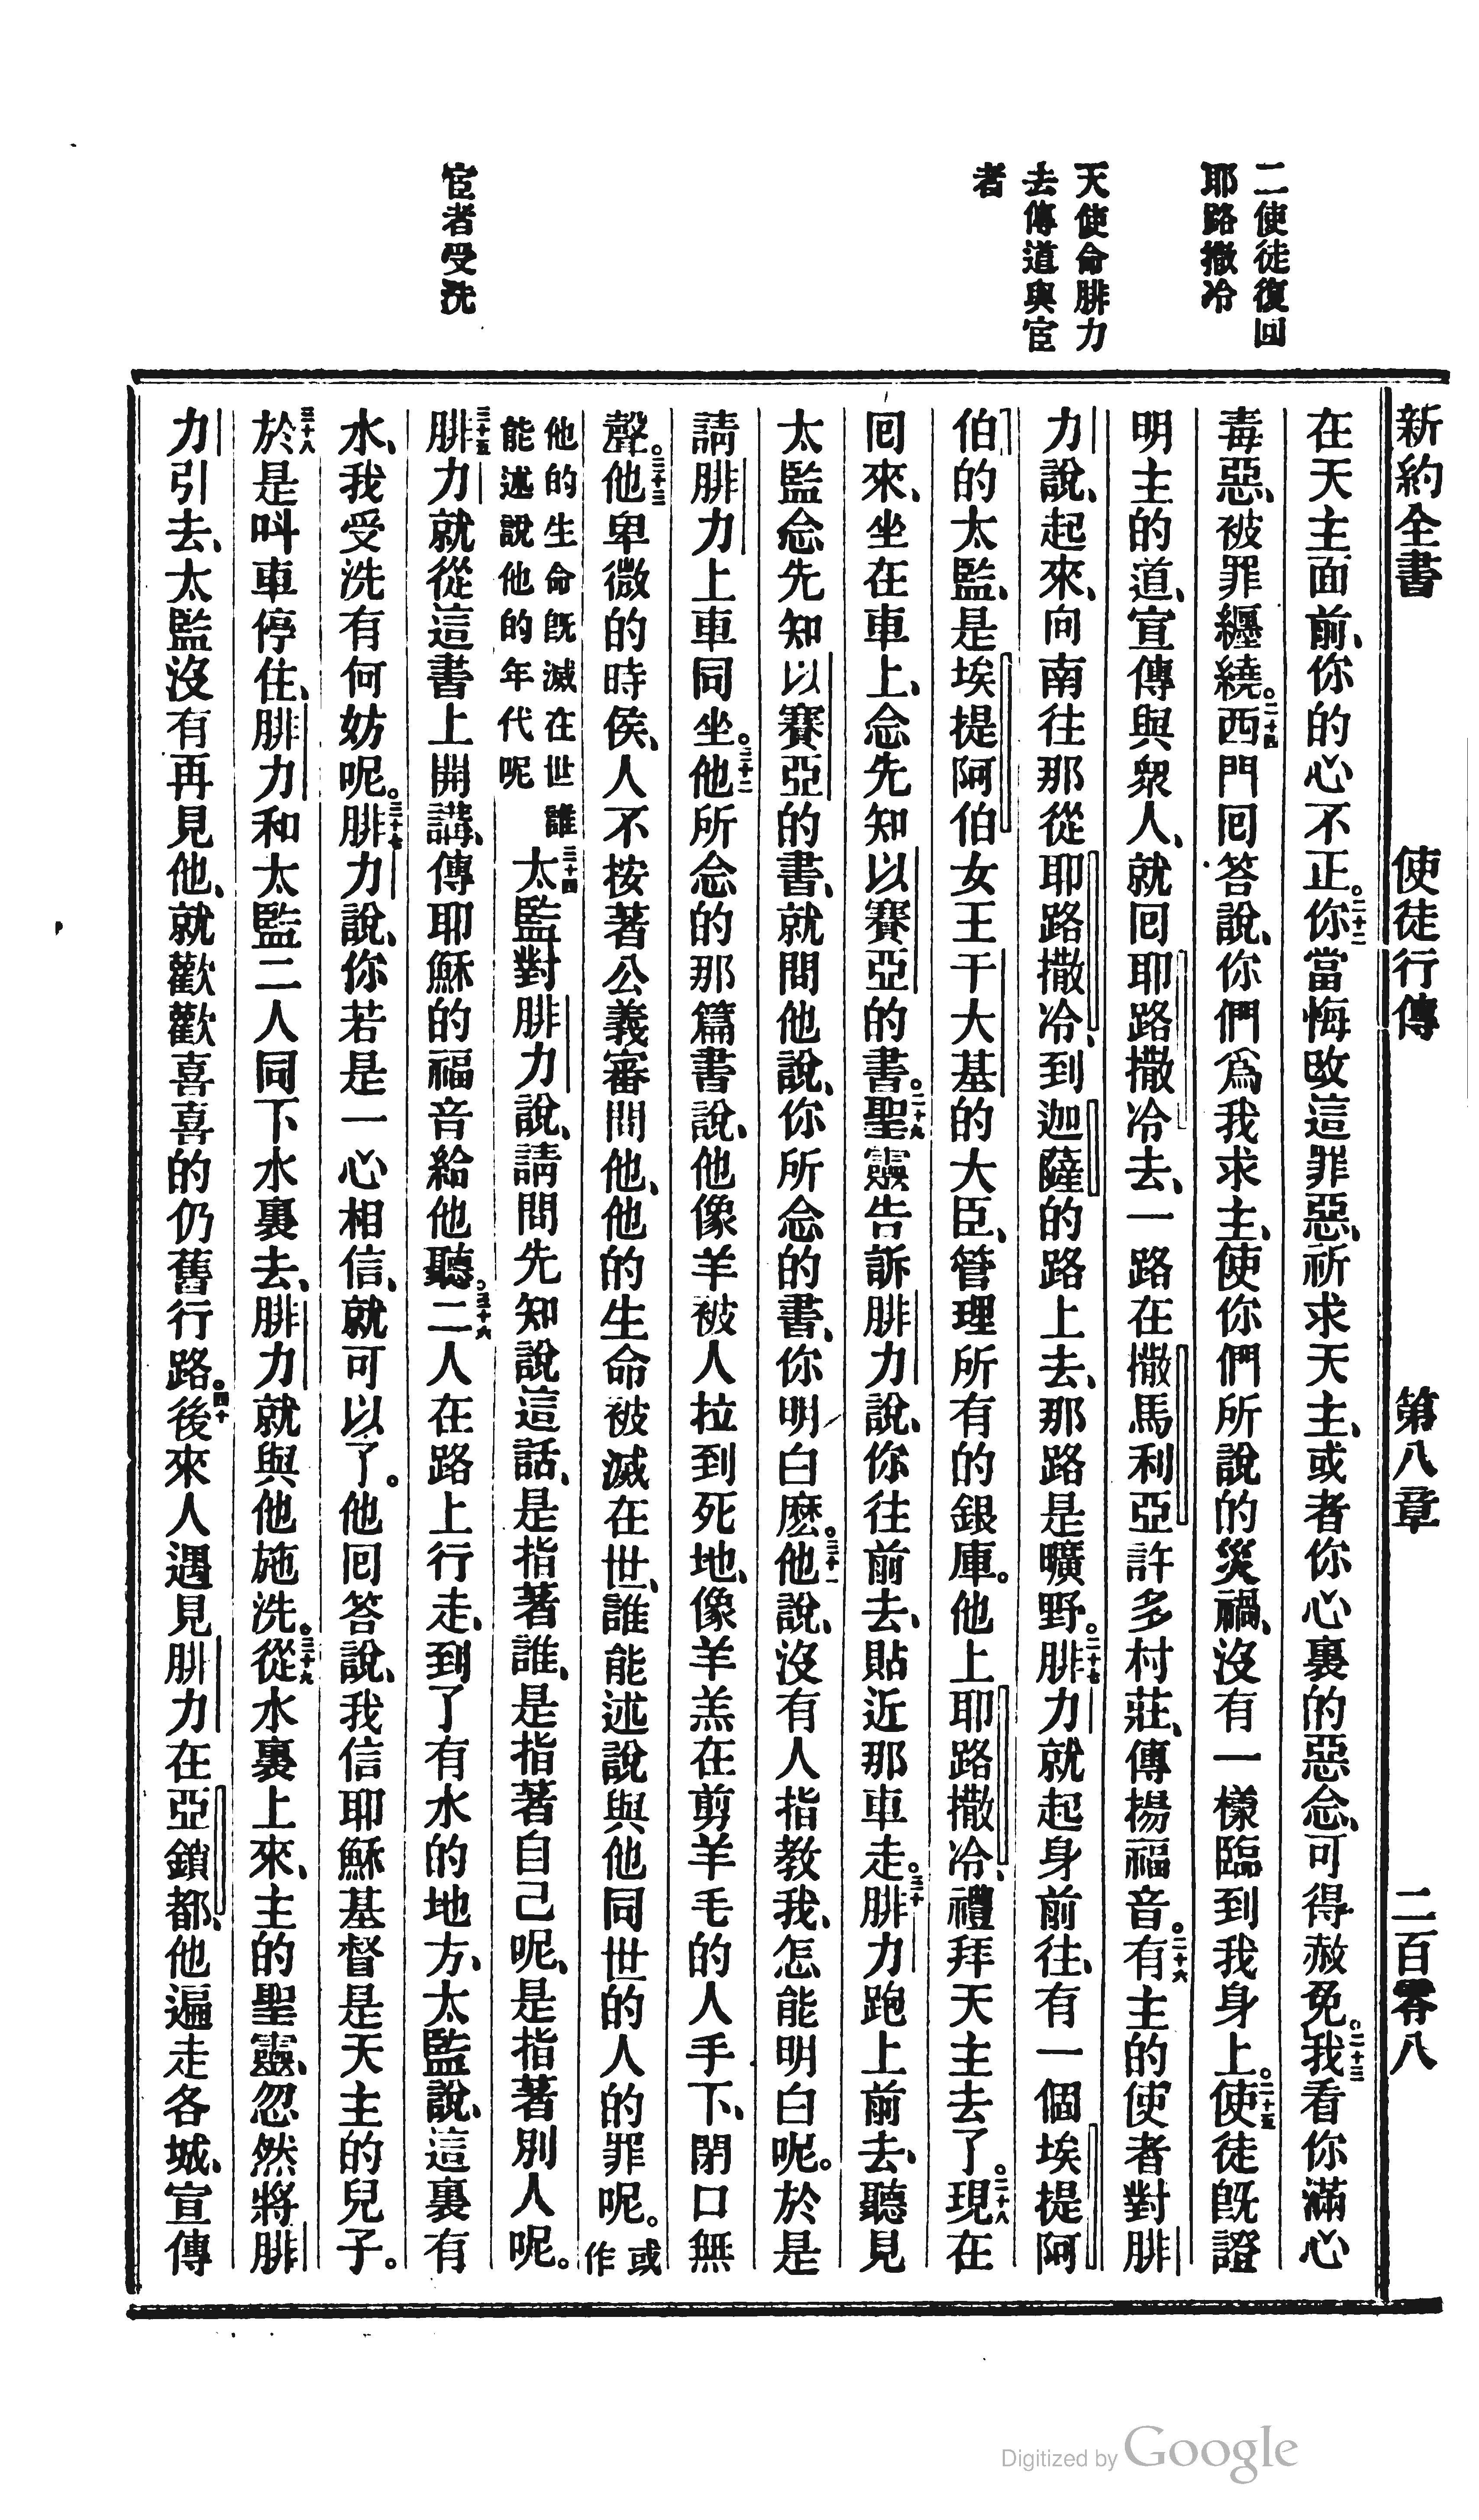 新約全書 使徒行傳 第八章 二百零八
二使徒復回
耶路撒冷
天使命腓力
去傳道與宦
者
宦者受洗
在天主面前、你的心不正。二十二你當悔改這罪惡、祈求天主、或者你心裏的惡念、可得赦免。二十三我看你滿心
毒惡、被罪纏繞。二十四西門回答說、你們爲我求主、使你們所說的災禍、沒有一樣臨到我身上。二十五使徒旣證
明主的道、宣傳與衆人、就回耶路撒冷去、一路在撒馬利亞許多村莊、傳揚福音。二十六有主的使者對腓
力說、起來、向南往那從耶路撒冷、到迦薩的路上去、那路是曠野。二十七腓力就起身前往、有一個埃提阿
伯的太監、是埃提阿伯女王干大基的大臣、管理所有的銀庫。他上耶路撒冷、禮拜天主去了。二十八現在
回來、坐在車上、念先知以賽亞的書。二十九聖靈告訴腓力說、你往前去、貼近那車走。三十腓力跑上前去、聽見
太監念先知以賽亞的書、就問他說、你所念的書、你明白麽。三十一他說、沒有人指教我、怎能明白呢。於是
請腓力上車同坐。三十二他所念的那篇書說、他像羊被人拉到死地、像羊羔在剪羊毛的人手下、閉口無
聲。三十三他卑微的時侯、人不按著公義審問他、他的生命被滅在世、誰能述說與他同世的人的罪呢。或作
他的生命旣滅在世誰
能述說他的年代呢
三十四太監對腓力說、請問先知說這話、是指著誰、是指著自己呢、是指著別人呢。
三十五腓力就從這書上開講、傳耶穌的福音給他聽。三十六二人在路上行走、到了有水的地方、太監說、這裏有
水、我受洗有何妨呢。三十七腓力說、你若是一心相信、就可以了。他回答說、我信耶穌基督是天主的兒子。
三十八於是叫車停住、腓力和太監二人同下水裏去、腓力就與他施洗。三十九從水裏上來、主的聖靈、忽然將腓
力引去、太監沒有再見他、就歡歡喜喜的仍舊行路。四十後來人遇見腓力在亞鎖都、他遍走各城、宣傳
Digitized by Google